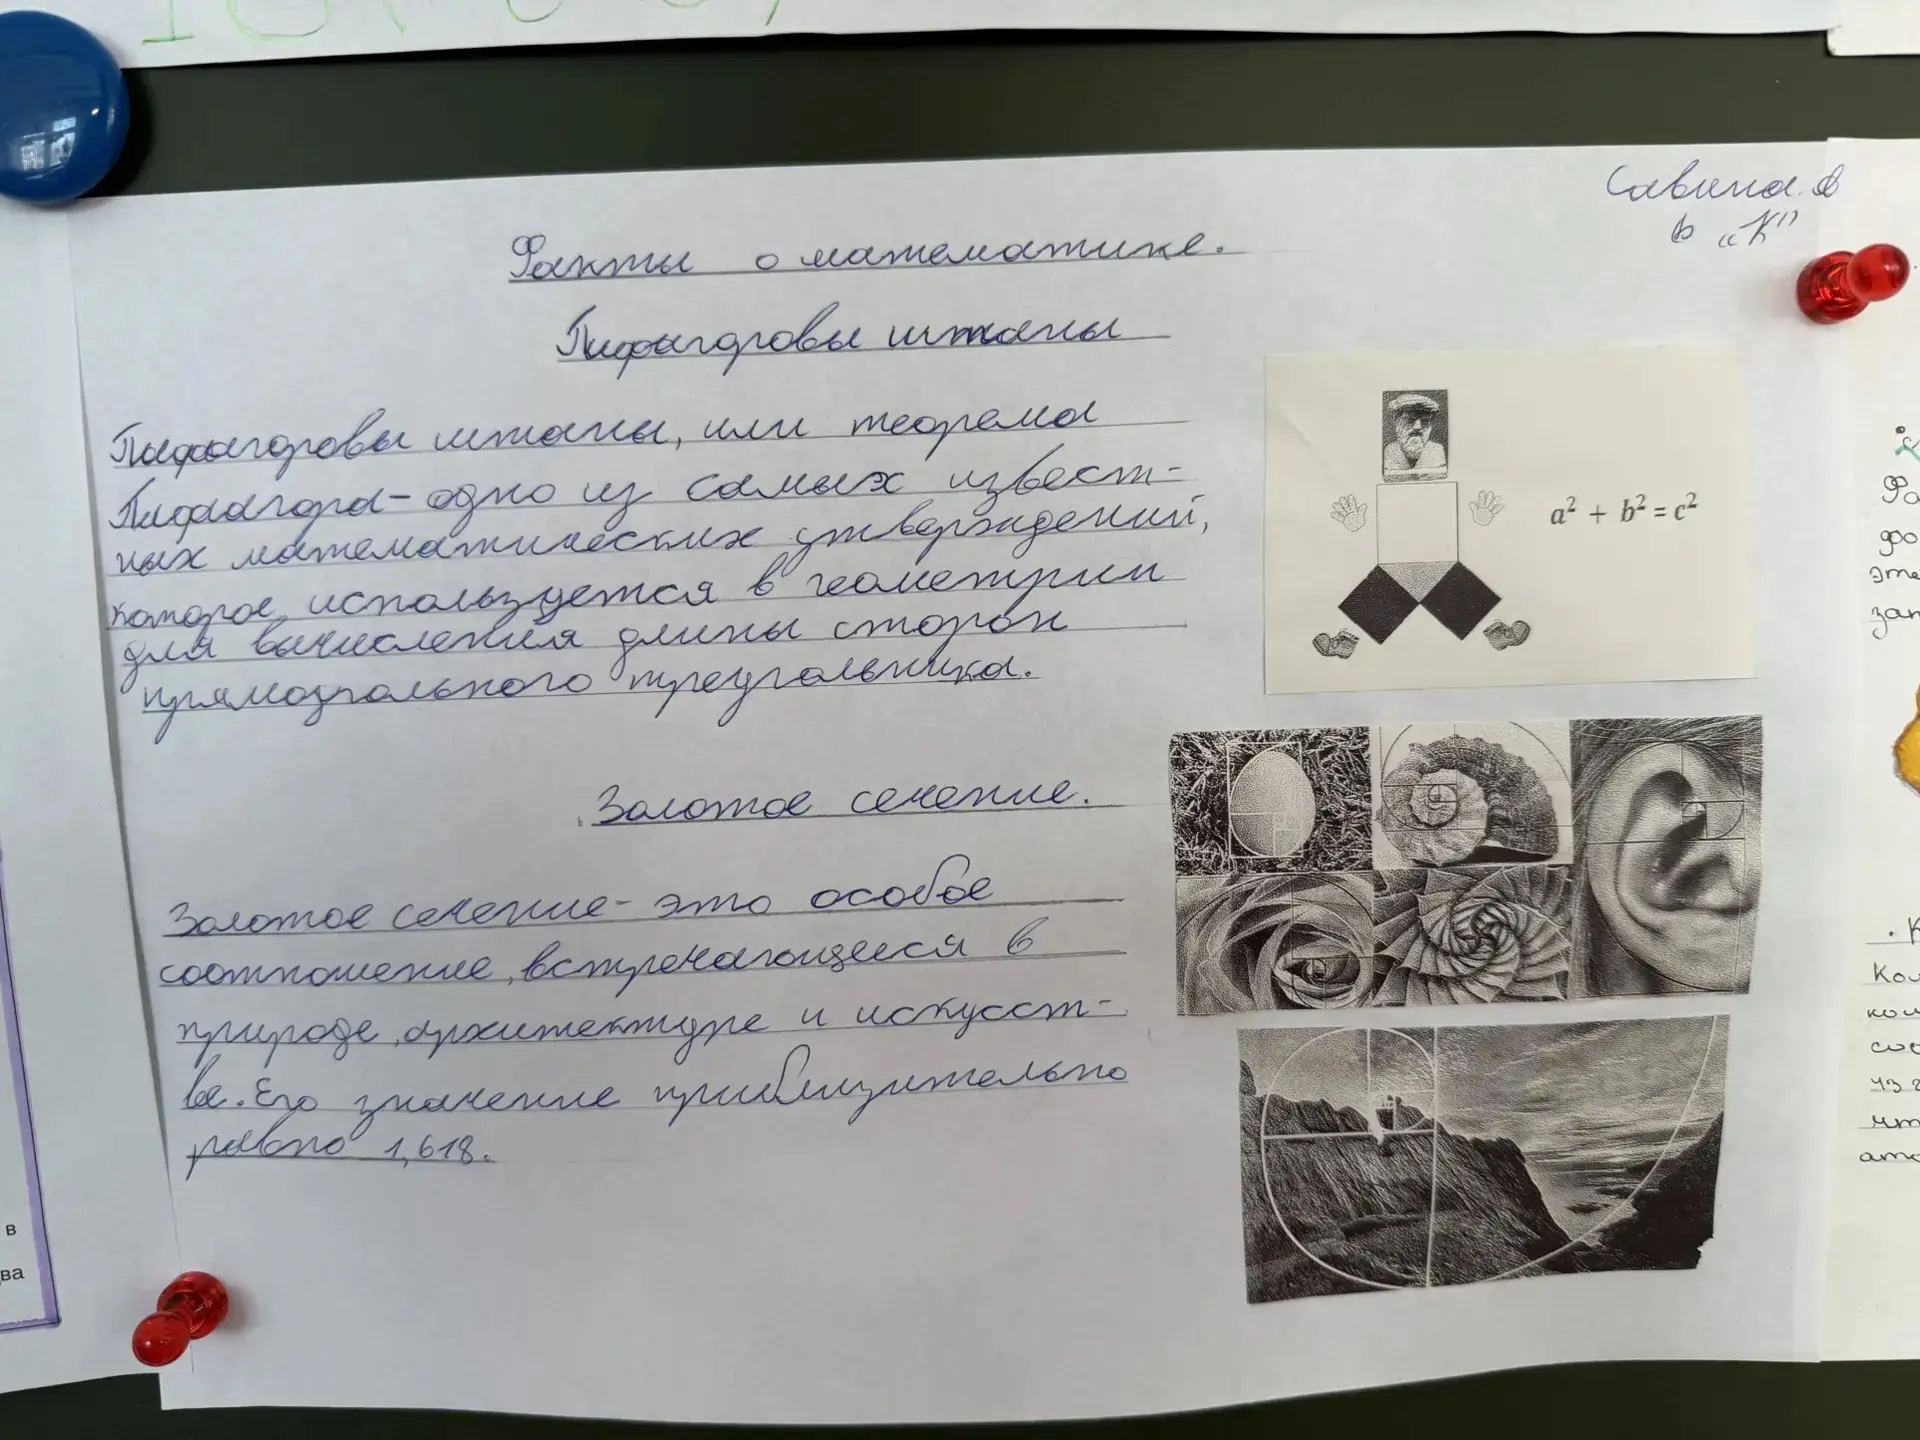 Савина. А
6 "К"
Факты о математике.
Пифагоровы штаны
Пифагоровы штаны, или теорема
Пифагора - одно из самых извест-
ных математических утверждений,
которое используется в геометрии
для вычисления длины сторон
прямоугольного треугольника.
a² + b² = c²
Золотое сечение.
Золотое сечение - это особое
соотношение, встречающееся в
природе, архитектуре и искусст-
ве. Его значение приблизительно
равно 1,618.
в
ва